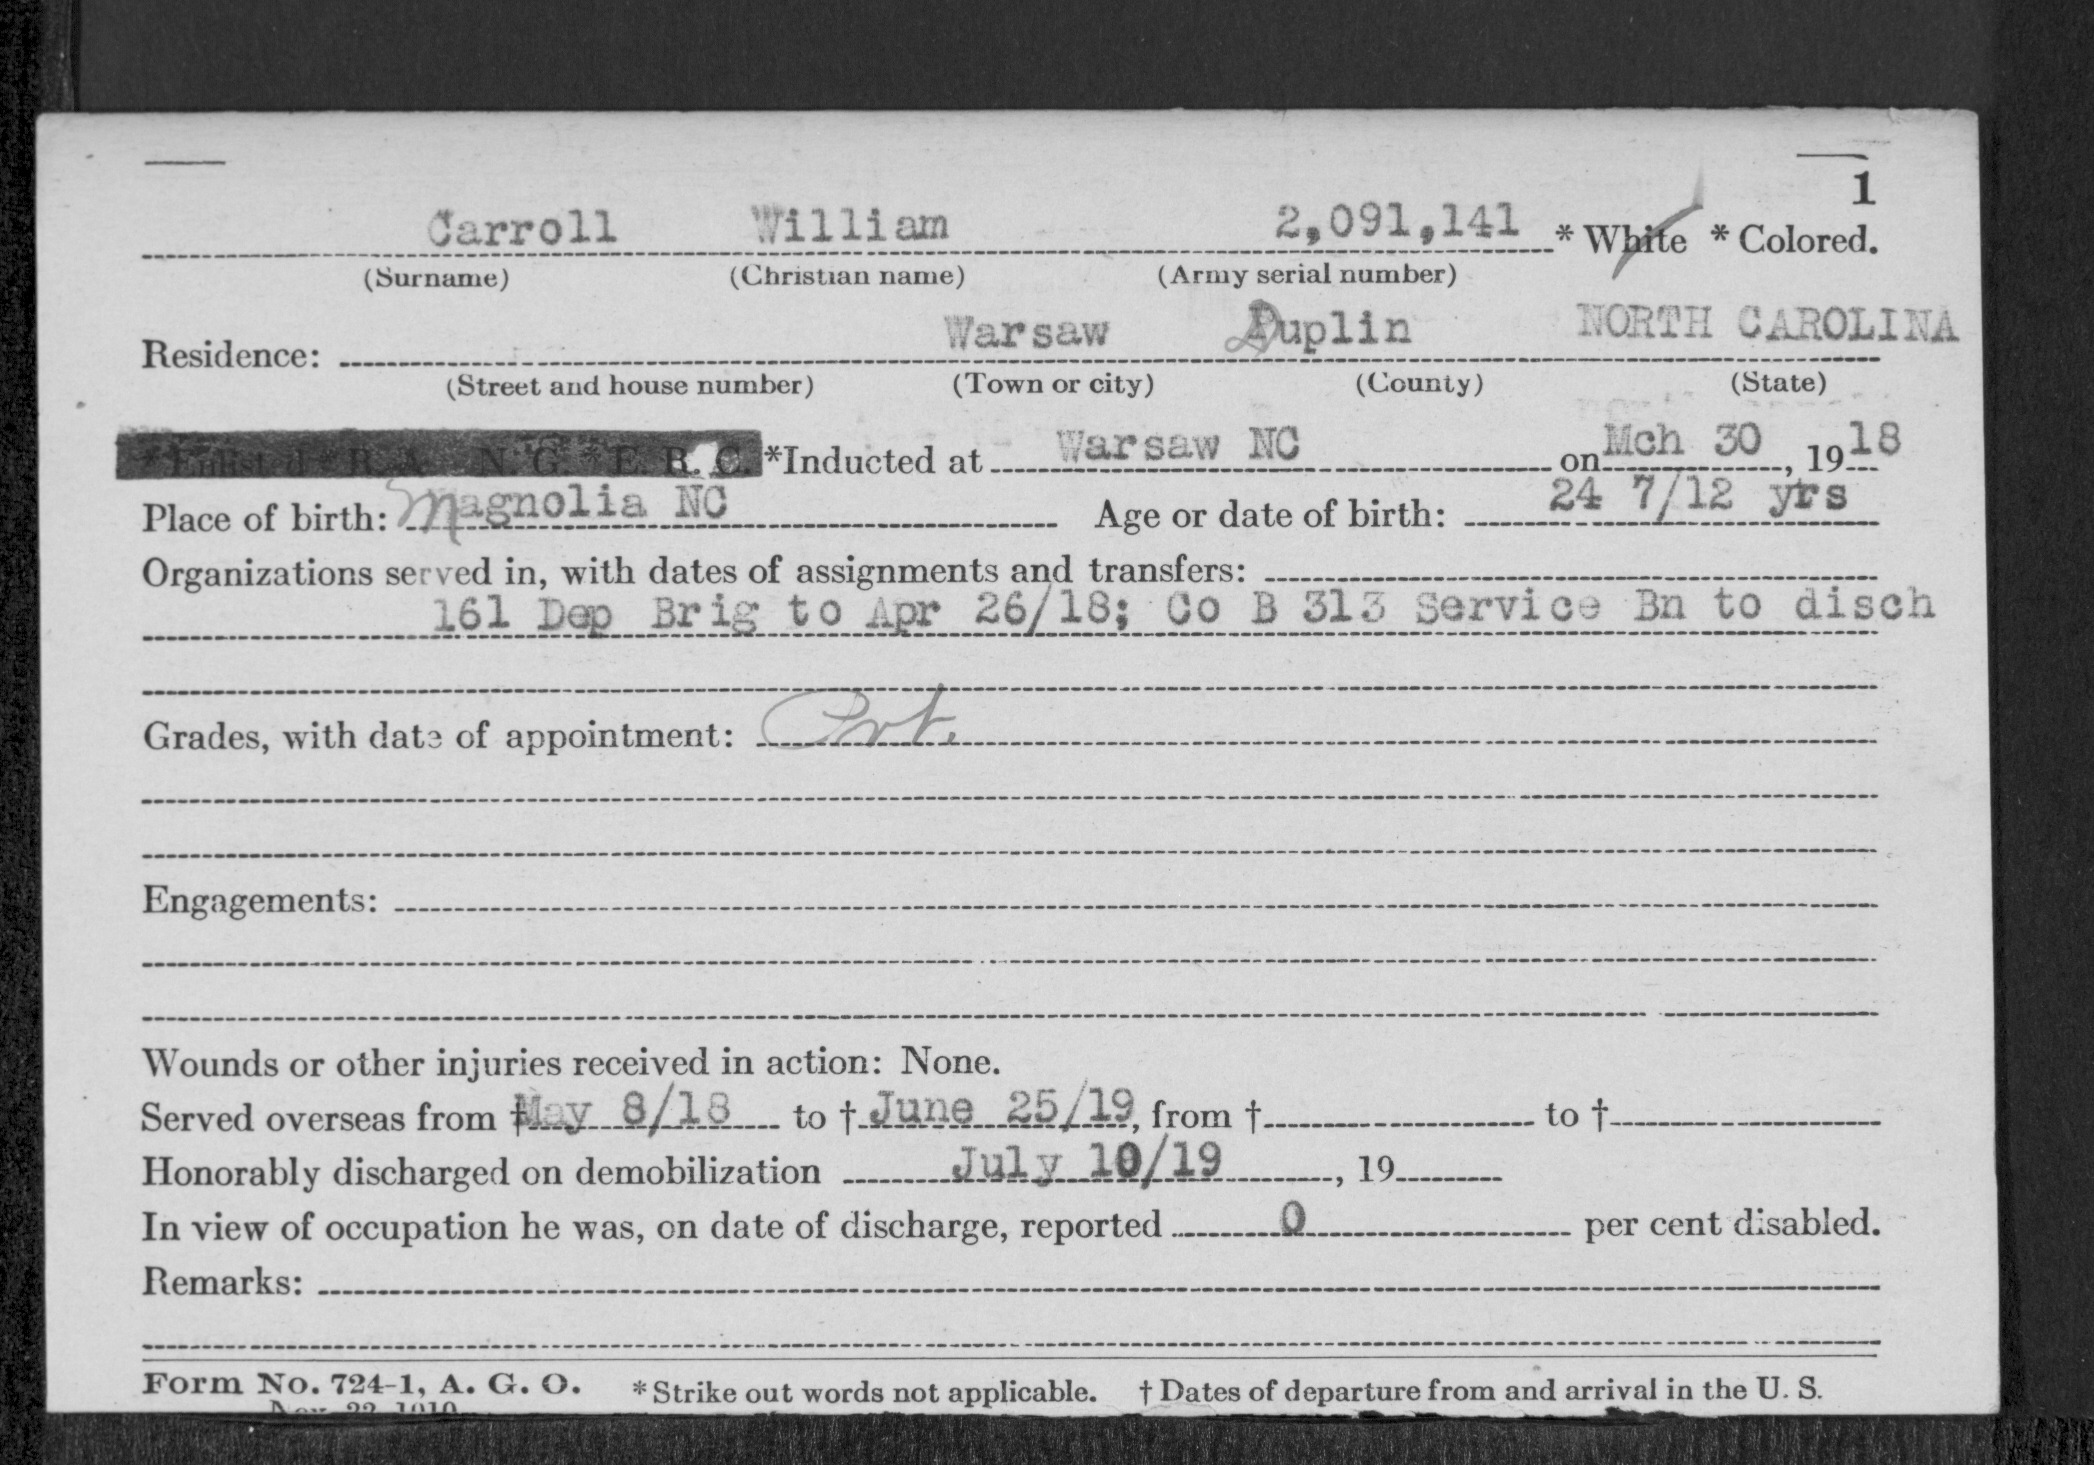 1
Carroll William 2,091,141 * White * Colored.
(Surname) (Christian name) (Army serial number)
Residence: Warsaw Duplin NORTH CAROLINA
(Street and house number) (Town or city) (County) (State)
* Enlisted * R. A. N. G. * E. R. C. *Inducted at Warsaw NC on Mch 30, 1918
Place of birth: Magnolia NC Age or date of birth: 24 7/12 yrs
Organizations served in, with dates of assignments and transfers:
161 Dep Brig to Apr 26/18; Co B 313 Service Bn to disch
Grades, with date of appointment: Pvt.
Engagements:
Wounds or other injuries received in action: None.
Served overseas from † May 8/18 to † June 25/19, from † to †
Honorably discharged on demobilization July 10/19, 19
In view of occupation he was, on date of discharge, reported 0 per cent disabled.
Remarks:
Form No. 724-1, A. G. O. * Strike out words not applicable. † Dates of departure from and arrival in the U. S.